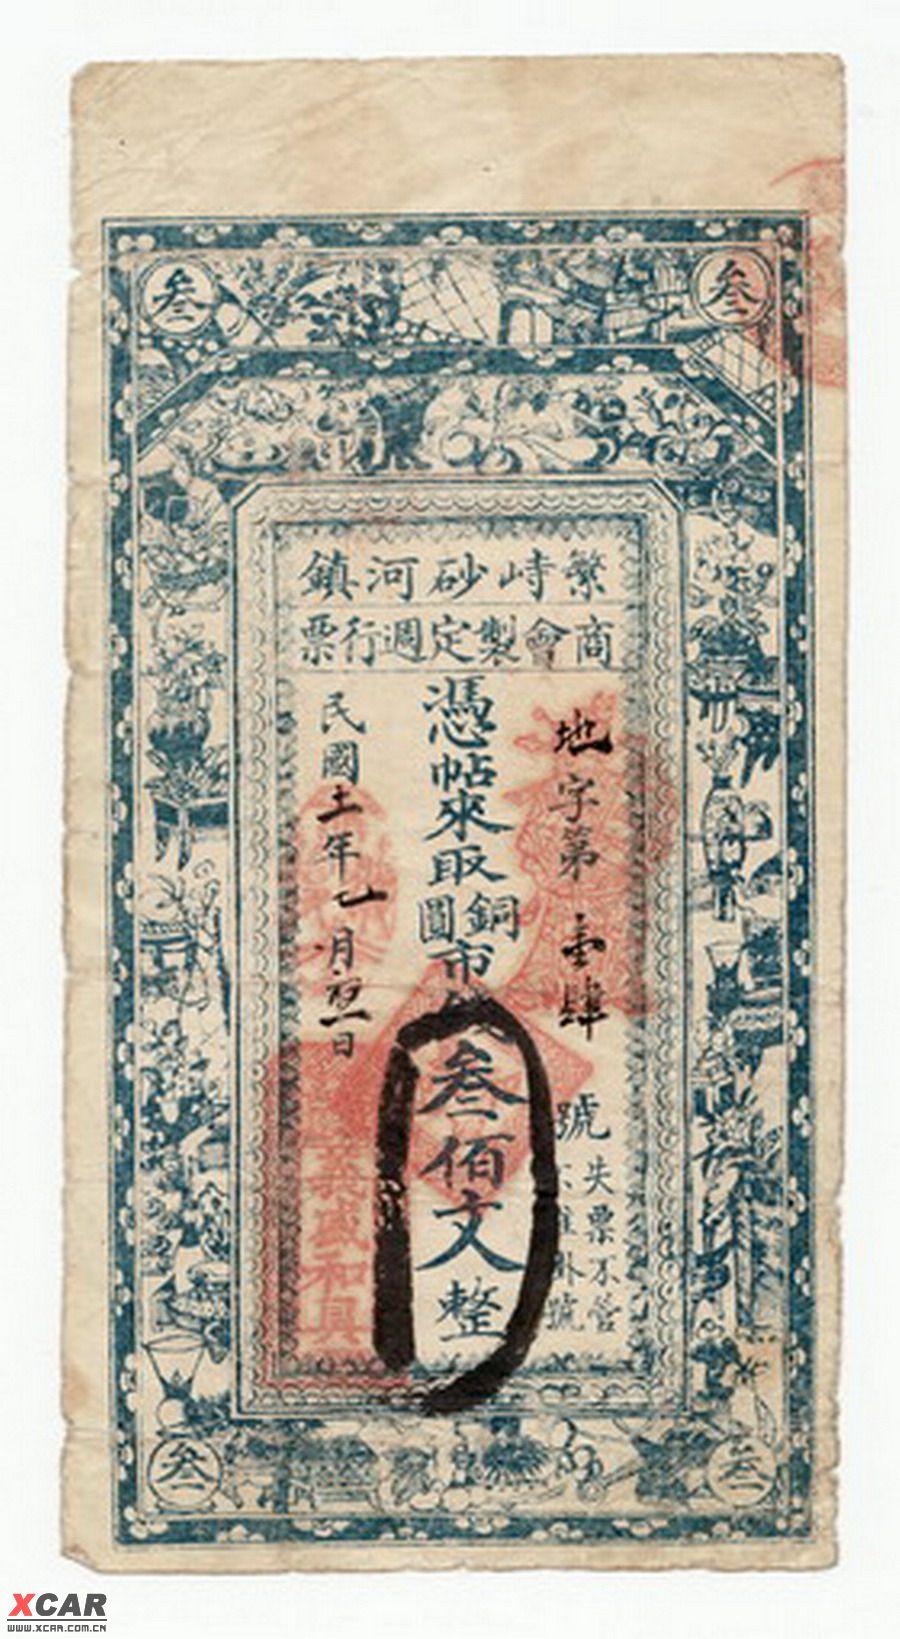 叁
叁
繁峙砂河鎮
商會製定週行票
地字第壹肆號
失票不管
憑帖來取銅圓市錢叁佰文整
民國十一年七月 日
義盛和具
叁
叁
XCAR
www.xcar.com.cn